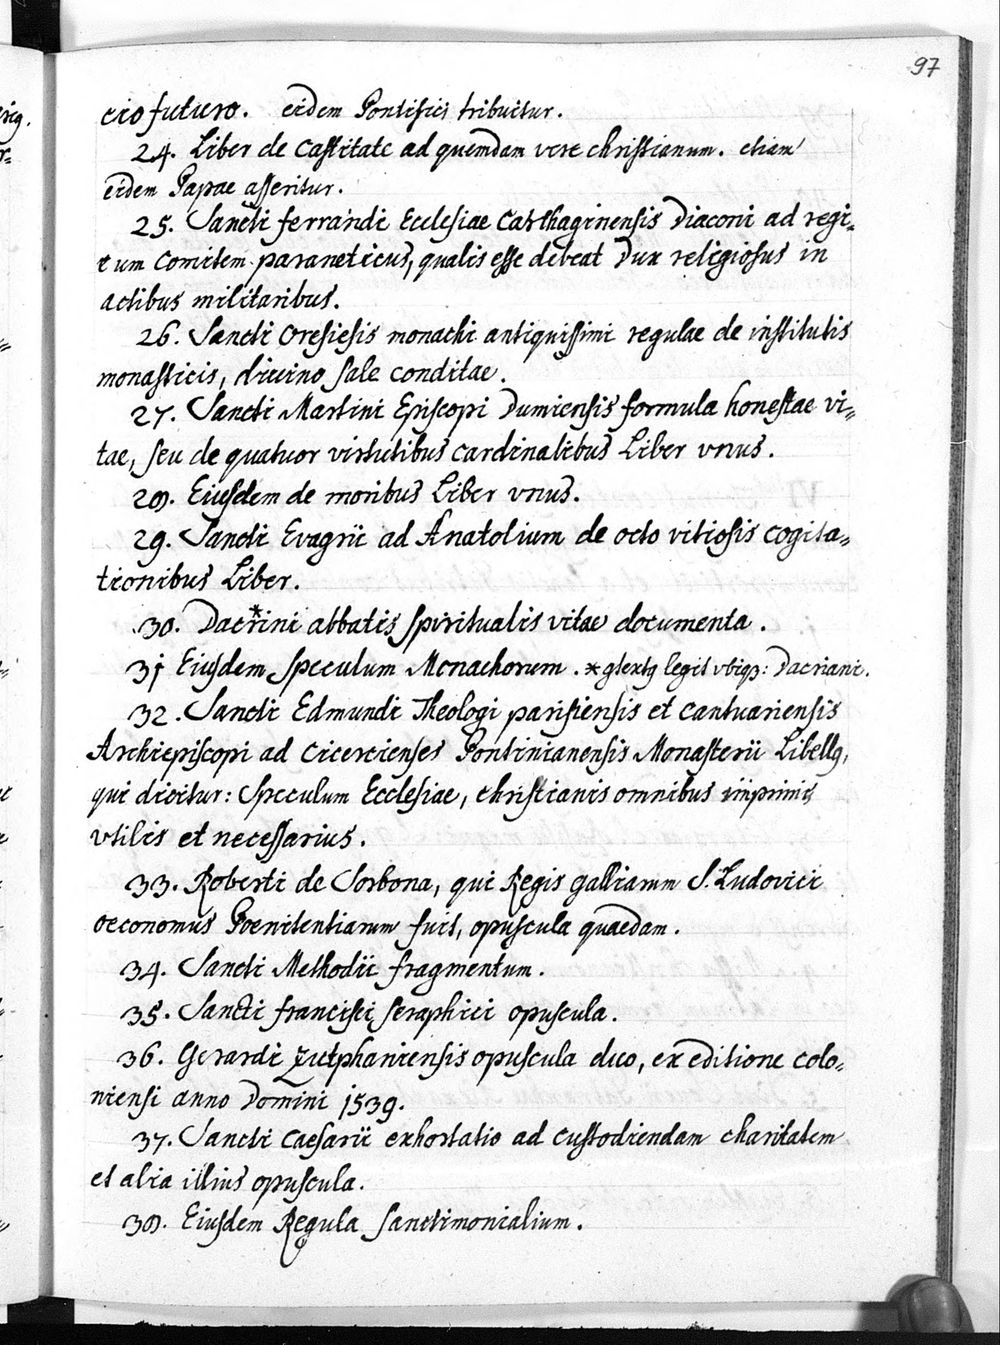 97
cio futuro. eidem Pontifici tribuitur.
24. Liber de Castitate ad quemdam vere christianum. etiam
eidem Papae asseritur.
25. Sancti ferrandi Ecclesiae Carthaginensis Diaconi ad regi=
tum Comitem paraneticus, qualis esse debeat Dux religiosus in
actibus militaribus.
26. Sancti Oresiesis monachi antiquissimi regulae de institutis
monasticis, divino sale conditae.
27. Sancti Martini Episcopi Dumiensis formula honestae vi=
tae, seu de quatuor virtutibus cardinalibus Liber vnus.
28. Eiusdem de moribus Liber vnus.
29. Sancti Evagrii ad Anatolium de octo vitiosis cogita=
tionibus Liber.
30. Dacrini* abbatis spiritualis vitae documenta.
31 Eiusdem speculum Monachorum. * legit vbiq3: Dacriani.
32. Sancti Edmundi Theologi parisiensis et cantuariensis
Archiepiscopi ad Cicercienses Pontinianensis Monasterii Libellq,
qui dicitur: Speculum Ecclesiae, christianis omnibus inprimis
vtilis et necessarius.
33. Roberti de Sorbona, qui Regis galliarum S. Ludovici
oeconomus Poenitentiarum fuit, opuscula quaedam.
34. Sancti Methodii fragmentum.
35. Sancti francisci seraphici opuscula.
36. Gerardi Zutphaniensis opuscula duo, ex editione colo=
niensi anno Domini 1539.
37. Sancti Caesarii exhortatio ad custodiendam charitatem
et alia illius opuscula.
38. Eiusdem Regula sanctimonialium.